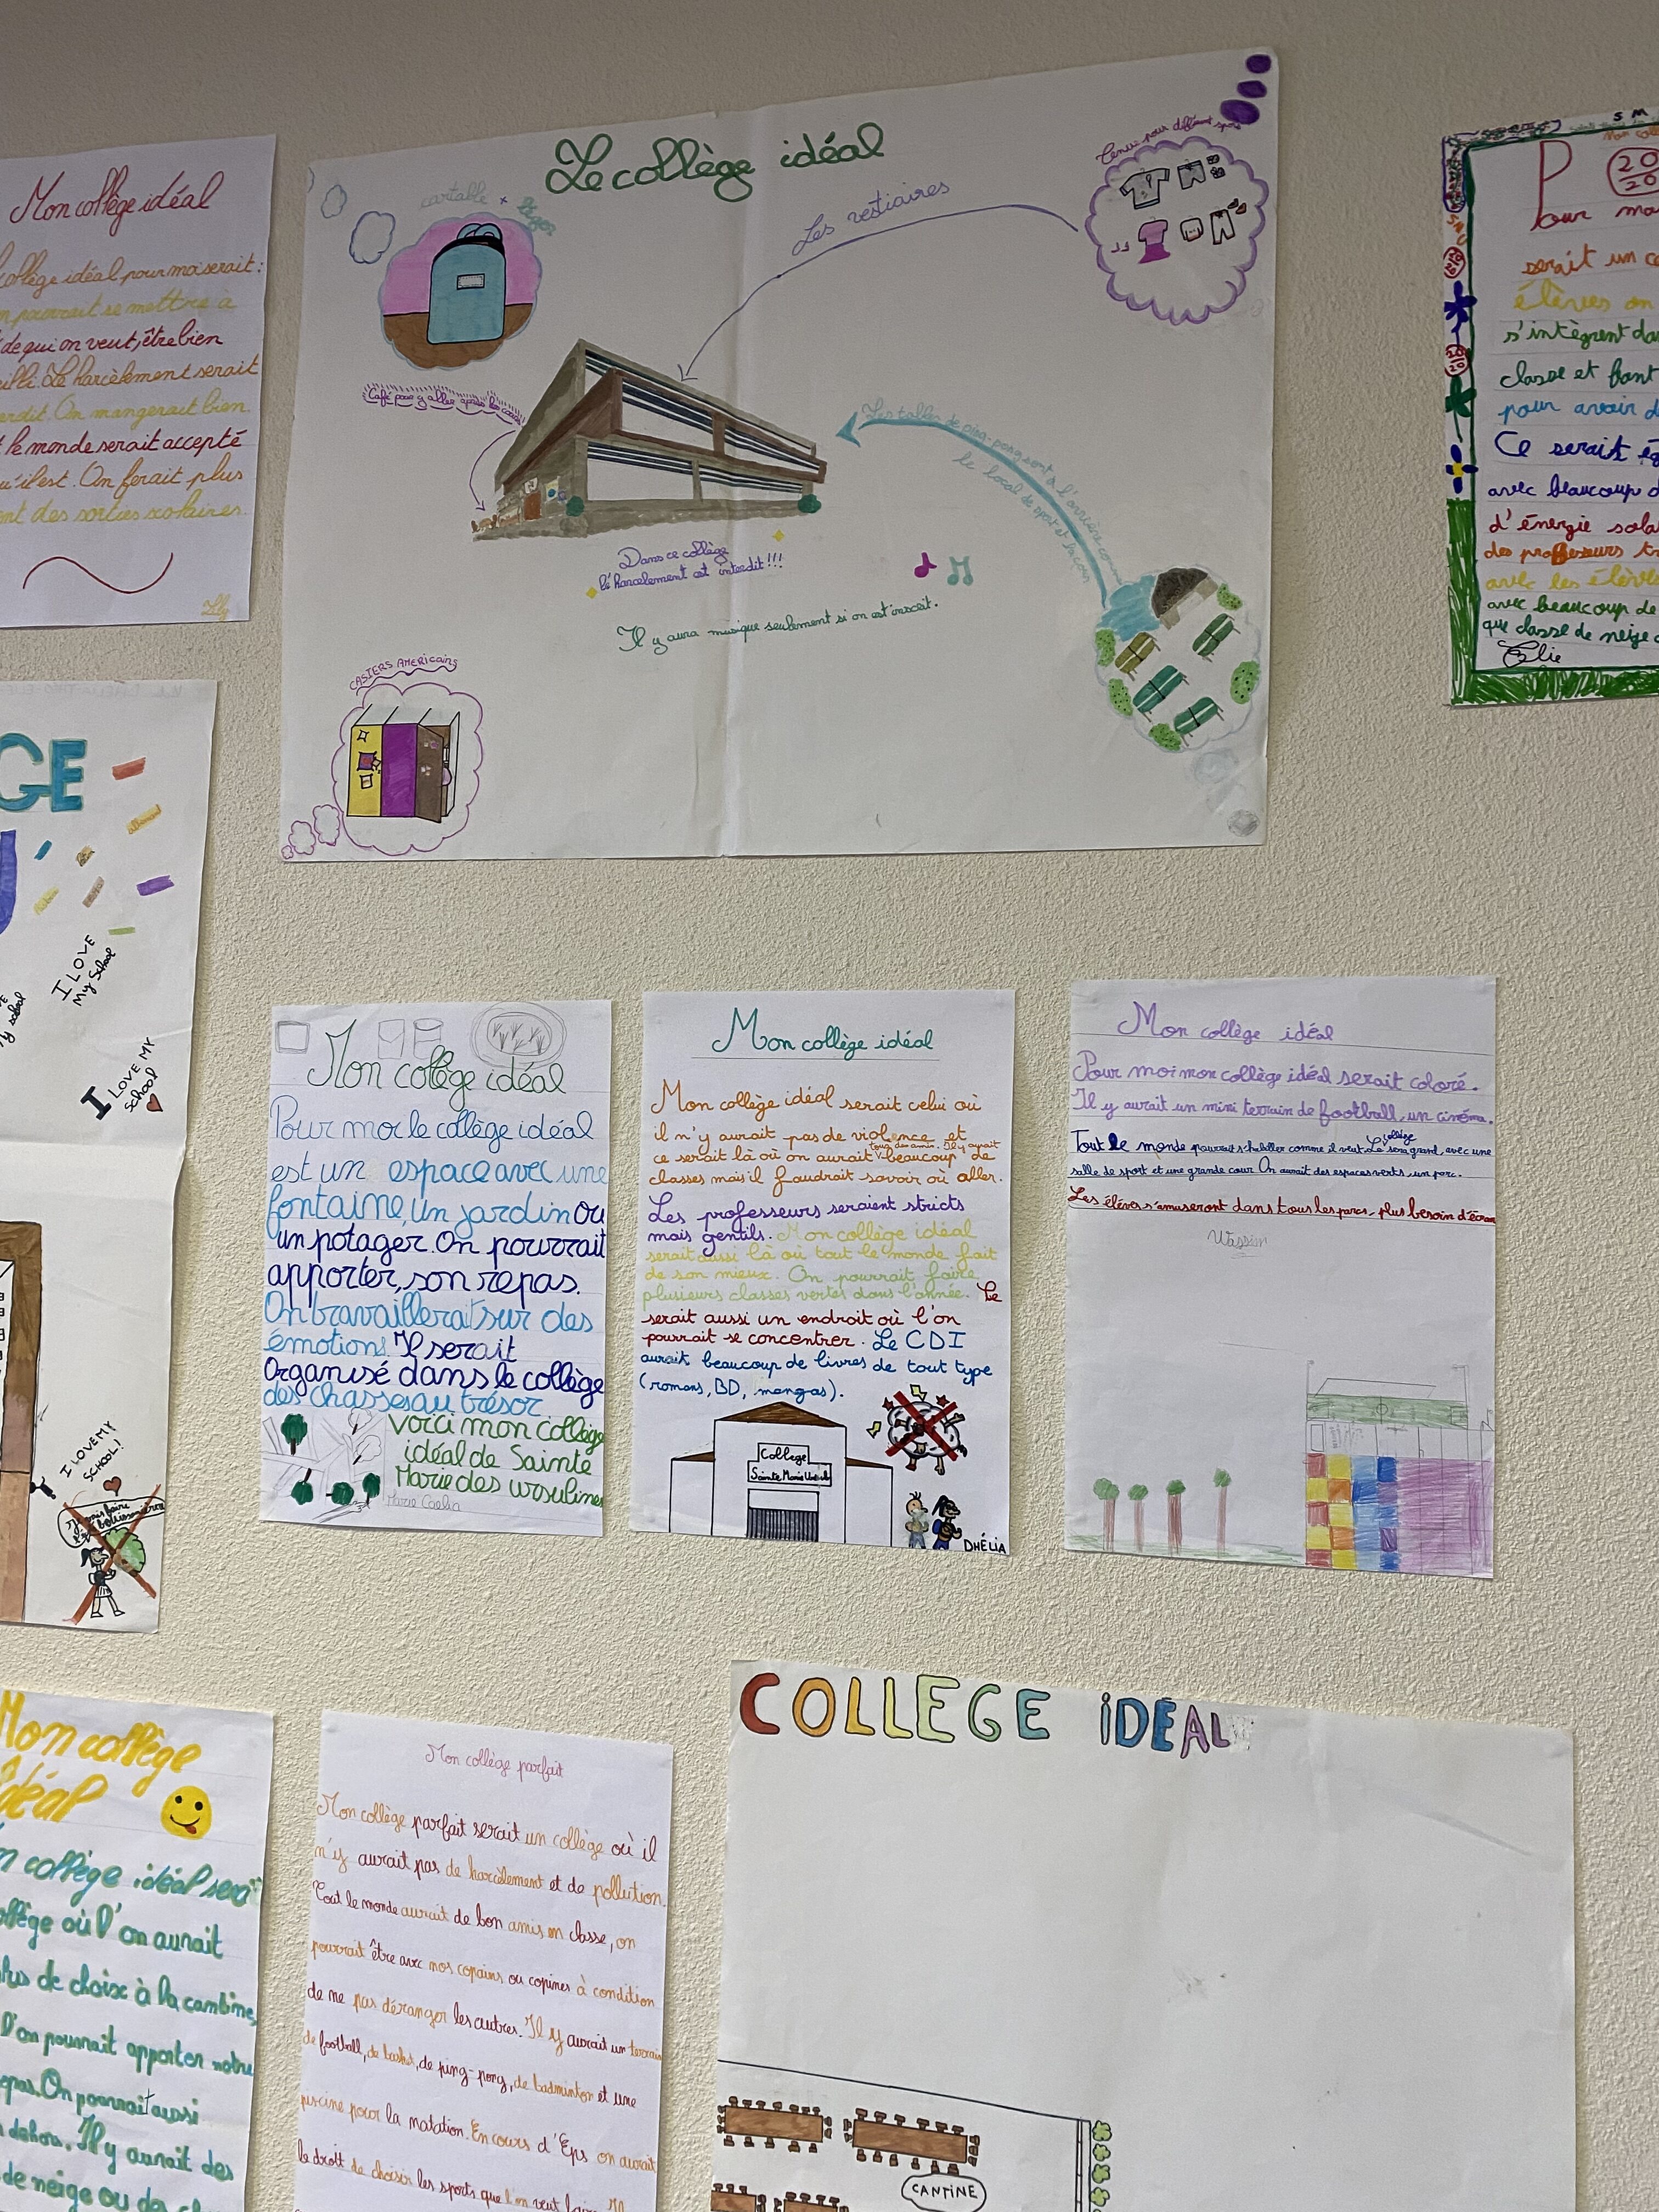 Mon collège idéal
collège idéal pour moi serait :
pourrait se mettre à
de qui on veut, être bien
Le harcèlement serait
On mangerait bien.
le monde serait accepté
qu'il est. On ferait plus
des sorties scolaires.
Lily
Le collège idéal
cartable +
Les vestiaires
Tenue pour différent sport
Café pour y aller après les cours
Les tables de ping-pong sont à l'arrière comme
le local de sport et la cour
Dans ce collège
l'harcelement est interdit!!!
Il y aura musique seulement si on est inscrit.
CASIERS AMERICAINS
20
20
Pour mo
serait un co
élèves on
s'intègrent da
classe et font
pour avoir d
Ce serait
avec beaucoup d
d'énergie sola
des professeurs
avec les élève
avec beaucoup de
que classe de neige
Elie
GE
I LOVE
My School
I LOVE MY
School
I LOVE MY
SCHOOL!
Mon collège idéal
Pour moi le collège idéal
est un espace avec une
fontaine, un jardin ou
un potager. On pourrait
apporter, son repas.
On travaillerait sur des
émotions. Il serait
organisé dans le collège
des chasses au trésor
voici mon collège
idéal de Sainte
Marie des ursulines
Marie Coelia
Mon collège idéal
Mon collège idéal serait celui où
il n'y aurait pas de violence et
ce serait là où on aurait tous des amis. Il y aurait beaucoup de
classes mais il faudrait savoir où aller.
Les professeurs seraient stricts
mais gentils. Mon collège idéal
serait aussi là où tout le monde fait
de son mieux. On pourrait faire
plusieurs classes vertes dans l'année. Ce
serait aussi un endroit où l'on
pourrait se concentrer. Le CDI
aurait beaucoup de livres de tout type
(romans, BD, mangas).
College
Sainte Marie
DHÉLIA
Mon collège idéal
Pour moi mon collège idéal serait coloré.
Il y aurait un mini terrain de football, un cinéma.
Tout le monde pourrait s'habiller comme il veut. Le collège sera grand, avec une
salle de sport et une grande cour. On aurait des espaces verts, un parc.
Les élèves s'amuseront dans tous les parcs, plus besoin d'écran
Wassim
Mon collège
idéal
collège idéal sera
collège où l'on aurait
plus de choix à la cantine,
l'on pourrait apporter notre
repas. On pourrait aussi
dehors. Il y aurait des
de neige ou des
Mon collège parfait
Mon collège parfait serait un collège où il
n'y aurait pas de harcèlement et de pollution.
Tout le monde aurait de bon amis en classe, on
pourrait être avec nos copains ou copines à condition
de ne pas déranger les autres. Il y aurait un terrain
de football, de basket, de ping-pong, de badminton et une
piscine pour la natation. En cours d'Eps on aurait
le droit de choisir les sports que l'on veut faire. Il
COLLEGE IDEAL
CANTINE